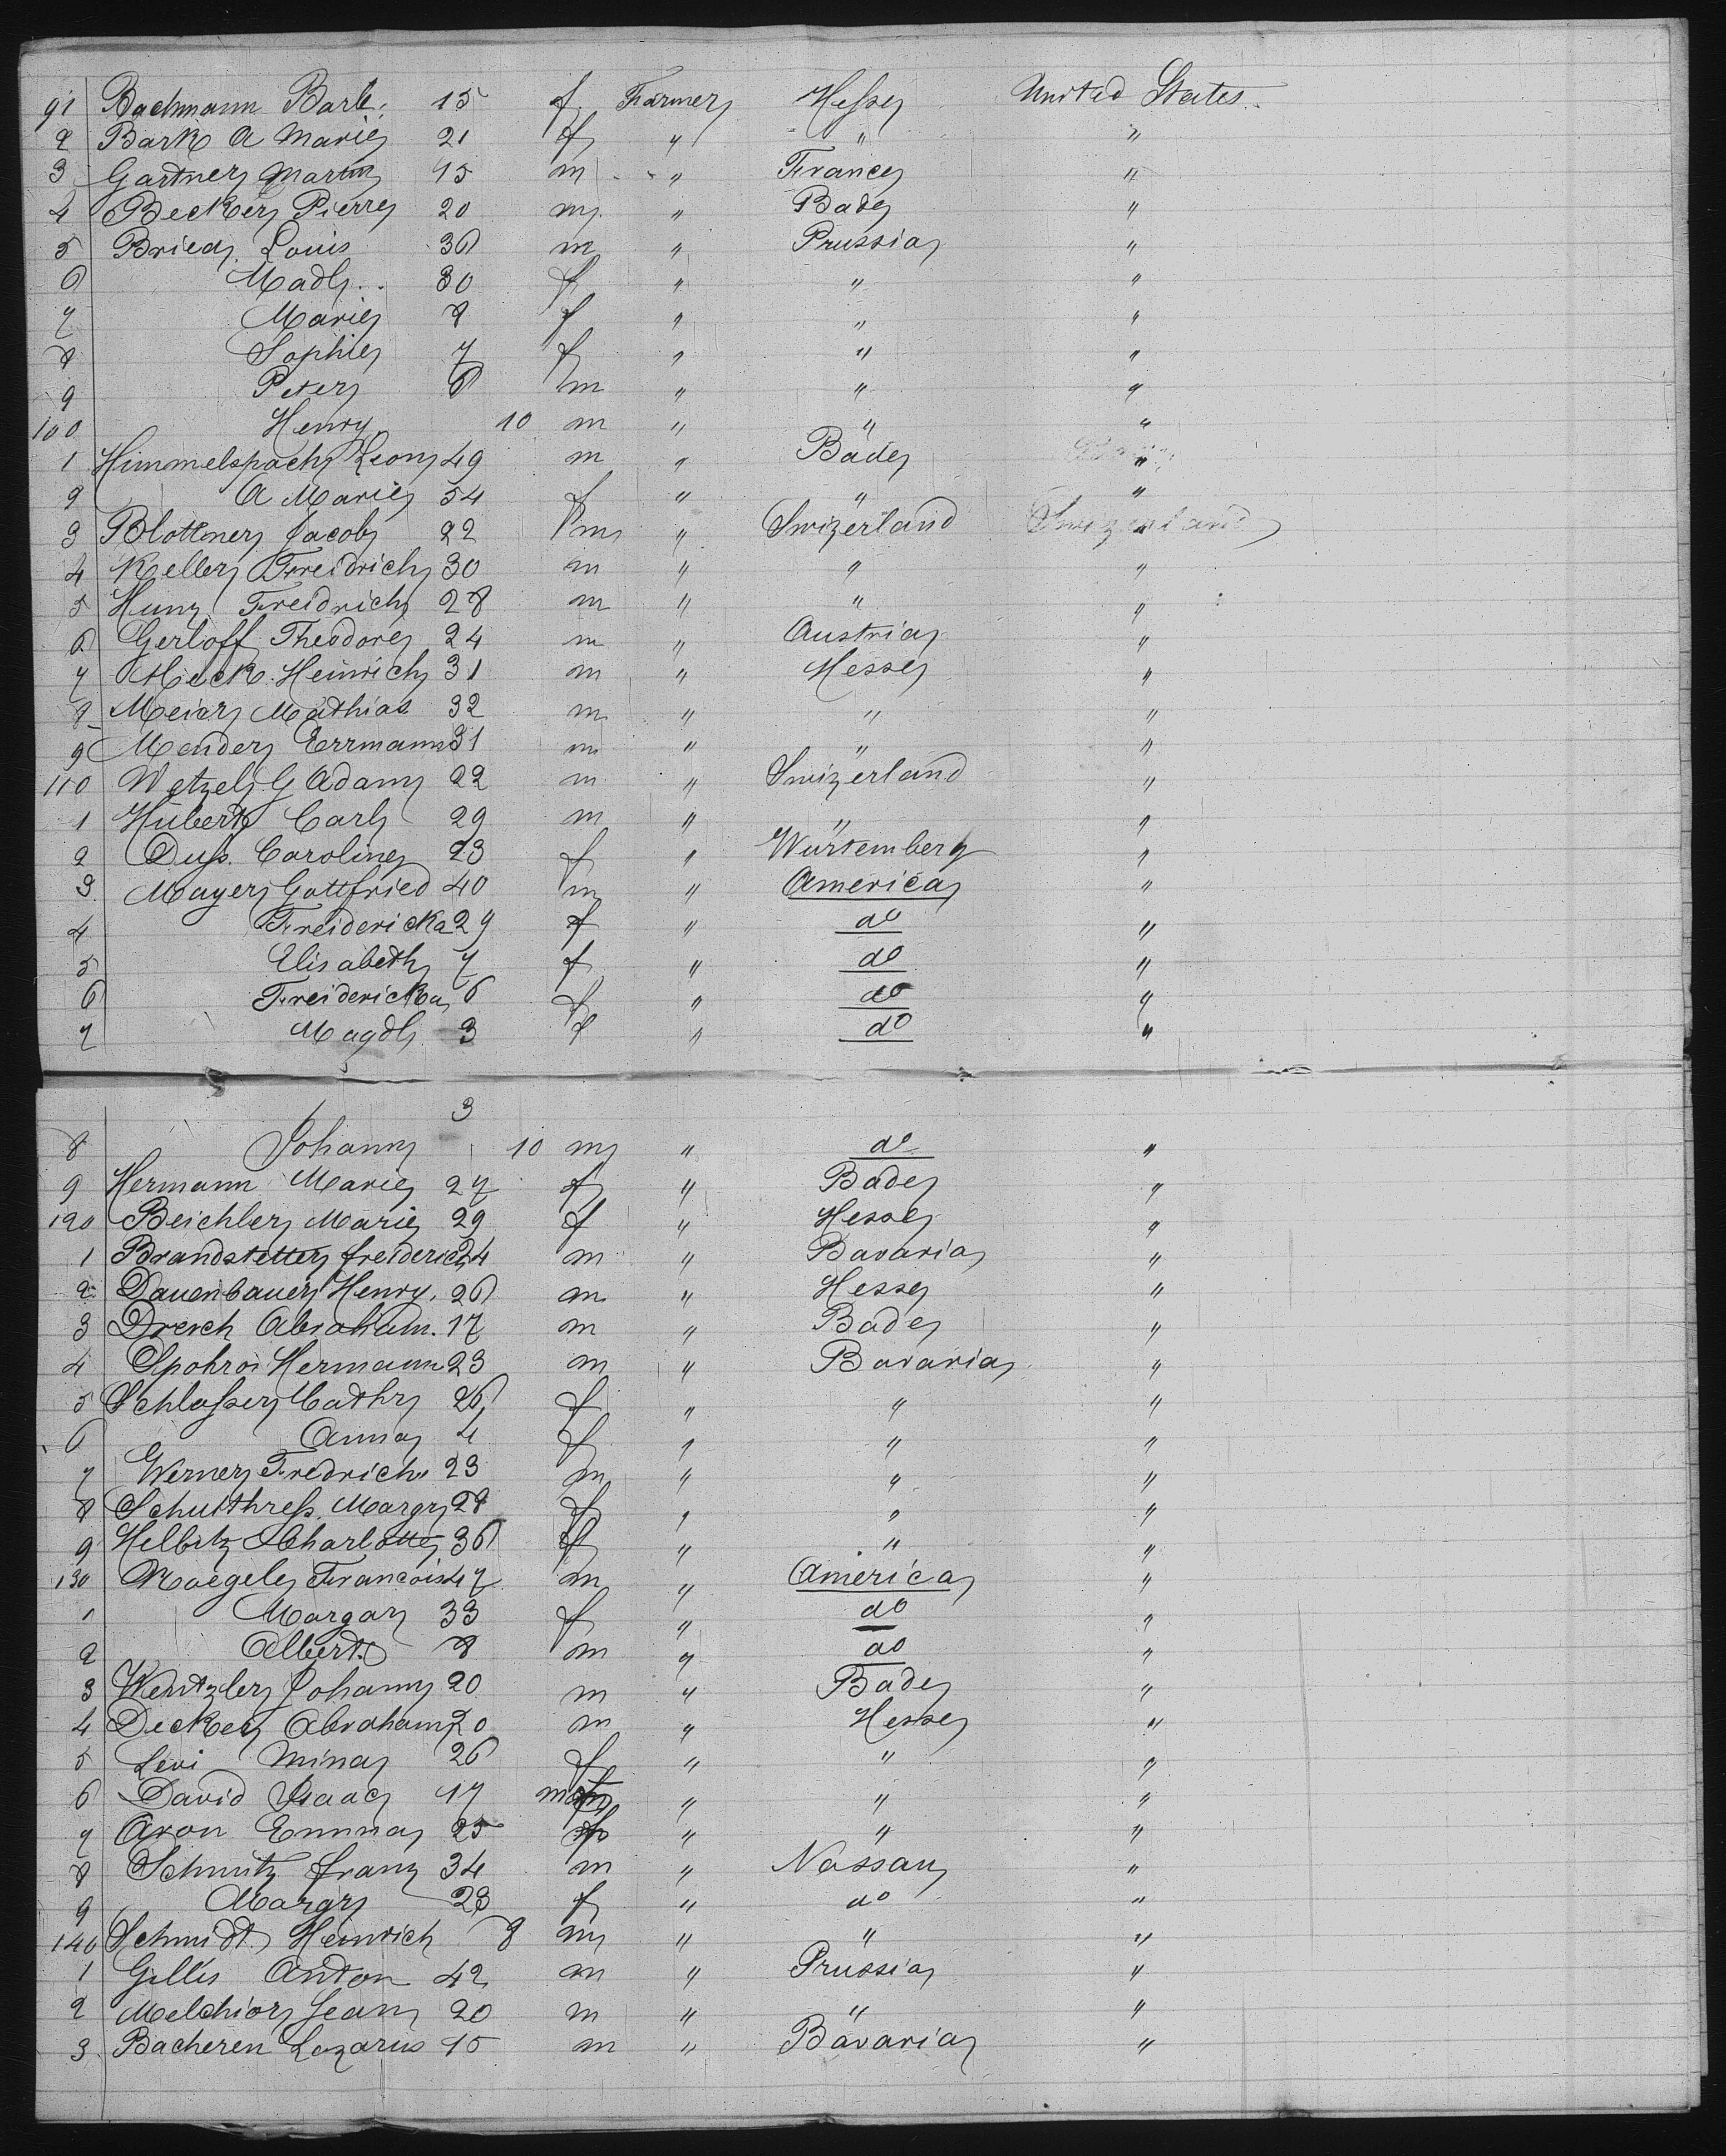 91 Bachmann Barb. 15 f Farmer Hesse United States
2 Bark A Marie 21 f " " "
3 Gartner Martin 45 m " France "
4 Becker Pierre 20 m " Bade "
5 Bried Louis 36 m " Prussia "
6 Madl. 30 f " " "
7 Marie 8 f " " "
8 Sophie 7 f " " "
9 Peter 6 m " " "
100 Henry 10 m " " "
1 Himmelspach Leon 49 m " Bade "
2 A Marie 54 f " " "
3 Blottner Jacob 22 m " Swizerland Swizerland "
4 Keller Freidrich 30 m " " "
5 Hunz Freidrich 28 m " " "
6 Gerloff Theodore 24 m " Austria "
7 Heck Heinrich 31 m " Hesse "
8 Meier Mathias 32 m " " "
9 Mender Errmann 31 m " " "
110 Wetzel G Adam 22 m " Swizerland "
1 Hubert Carl 29 m " " "
2 Duss Caroline 23 f " Würtemberg "
3 Mayer Gottfried 40 m " America "
4 Freidericka 29 f " do "
5 Elisabeth 7 f " do "
6 Freidericka 6 f " do "
7 Magdl. 3 f " do "
3
8 Johann 10 m " do "
9 Hermann Marie 27 f " Bade "
120 Beichler Marie 29 f " Hesse "
1 Brandstetter freiderich 24 m " Bavaria "
2 Dauenbauer Henry 26 m " Hesse "
3 Dresch Abraham 17 m " Bade "
4 Spohror Hermann 23 m " Bavaria "
5 Schlosser Cathr 26 f " " "
6 Anna 4 f " " "
7 Werner Fredrich 23 m " " "
8 Schulthress Margr 28 f " " "
9 Helbitz Charlotte 36 f " " "
130 Naegele Francois 47 m " America "
1 Margar 33 f " do "
2 Albert 8 m " do "
3 Wentzler Johann 20 m " Bade "
4 Decker Abraham 20 m " Hesse "
5 Levi Mina 26 f " " "
6 David Isaac 17 m " " "
7 Aron Emma 25 f " " "
8 Schmitz franz 34 m " Nassau "
9 Margr 28 f " do "
140 Schmidt Heinrich 8 m " " "
1 Gillis Anton 42 m " Prussia "
2 Melchior Jean 20 m " " "
3 Bacheren Lazarus 15 m " Bavaria "